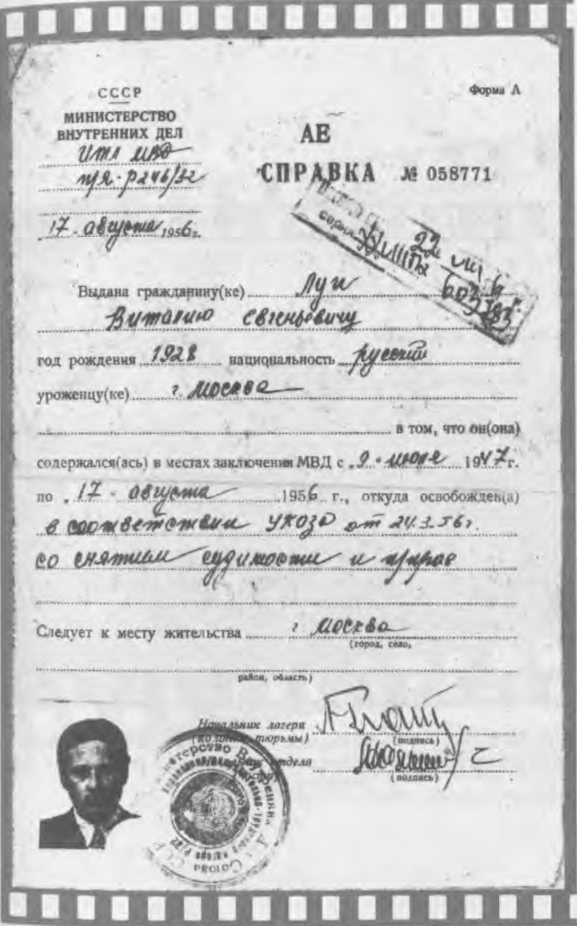 СССР
МИНИСТЕРСТВО
ВНУТРЕННИХ ДЕЛ
ИТЛ МВД
п/я-Р246/
17 - августа 1956г.
Форма А
АЕ
СПРАВКА № 058771
Выдана гражданину(ке) Лун
Виталию Евгеньевичу
год рождения 1928 национальность русский
уроженцу(ке) г. Москва
в том, что он(она)
содержался(ась) в местах заключения МВД с 9 - июля 1947г.
по 17 - августа 1956 г., откуда освобожден(а)
в соответствии УКАЗО от 24.3.56г.
со снятием судимости и
Следует к месту жительства г Москва
(город, село,
район, область)
Начальник лагеря
(колонии, тюрьмы)
(подпись)
отдела
(подпись)